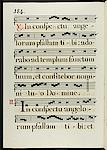 184.
In conspectu ange-
lorum psallam tibi: ado-
rabo ad templum sanctum
tuum, et confitebor nomi-
ni tuo Domine.
In conspectu angelo-
rum psallam ti- bi: et